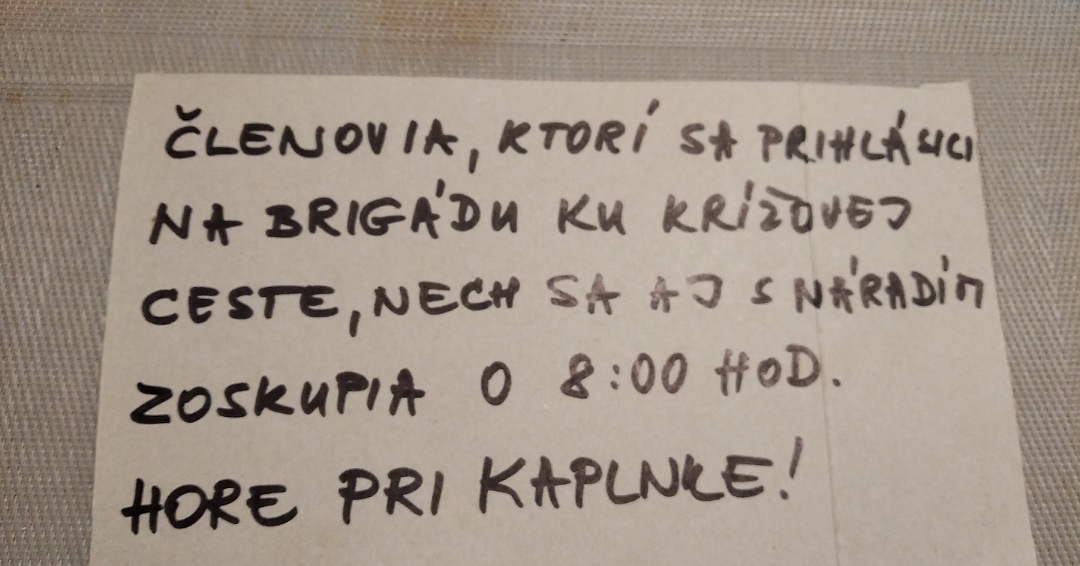 ČLENOVIA, KTORÍ SA PRIHLÁSILI
NA BRIGÁDU KU KRÍŽOVEJ
CESTE, NECH SA AJ S NÁRADÍM
ZOSKUPIA O 8:00 HOD.
HORE PRI KAPLNKE!